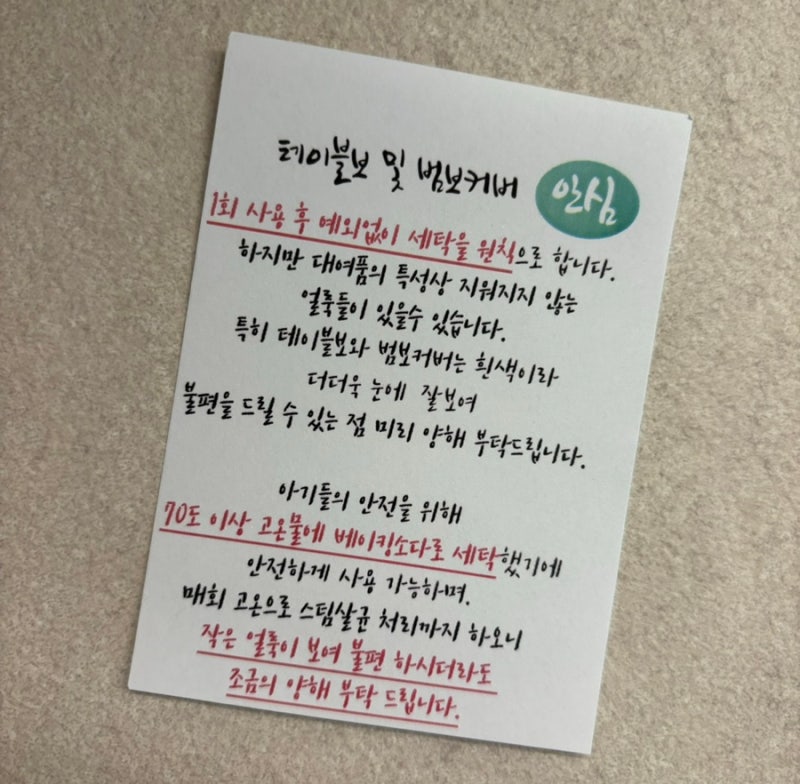 테이블보 및 범보커버 안심
1회 사용 후 예외없이 세탁을 원칙으로 합니다.
하지만 대여품의 특성상 지워지지 않는
얼룩들이 있을수 있습니다.
특히 테이블보와 범보커버는 흰색이라
더더욱 눈에 잘보여
불편을 드릴 수 있는 점 미리 양해 부탁드립니다.
아기들의 안전을 위해
70도 이상 고온물에 베이킹소다로 세탁했기에
안전하게 사용 가능하며.
매회 고온으로 스팀살균 처리까지 하오니
작은 얼룩이 보여 불편 하시더라도
조금의 양해 부탁 드립니다.